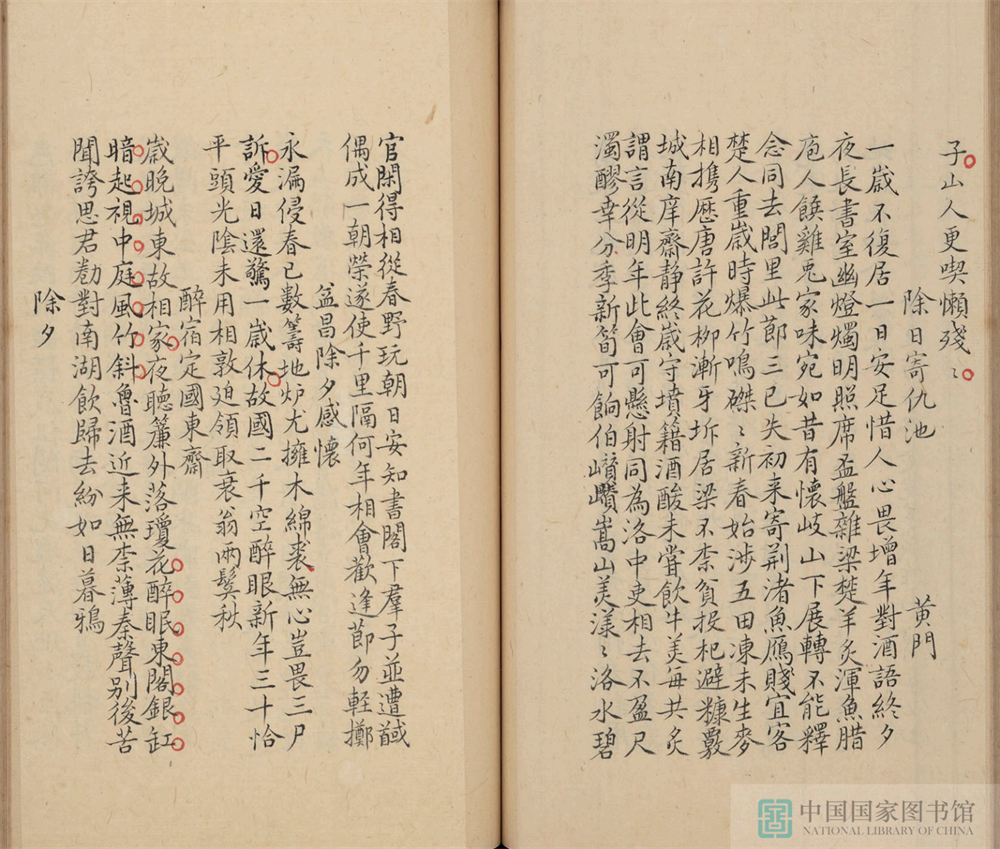 子山人更喫懶殘〻
除日寄仇池　黄門
一歳不復居一日安足惜人心畏增年對酒語終夕
夜長書室幽燈燭明照席盃盤雜梁楚羊炙渾魚腊
庖人饌雞兎家味宛如昔有懷岐山下展轉不能釋
念同去閭里此莭三已失初来寄荆渚魚鴈賤宜客
楚人重歳時爆竹鳴磔〻新春始涉五田凍未生麥
相携歴唐許花柳漸牙坼居梁不柰貧投杞避糠覈
城南庠齋静終歳守墳籍酒酸未嘗飲牛美每共炙
謂言從明年此會可懸射同為洛中吏相去不盈尺
濁醪幸分季新笱可餉伯巑巑嵩山美漾〻洛水碧
官閑得相從春野玩朝日安知書閣下羣子並遭馘
偶成一朝榮遂使千里隔何年相會歡逢莭勿輕擲
盆昌除夕感懷
永漏侵春已數籌地炉尤擁木綿裘無心豈畏三尸
訴愛日還驚一歳休故國二千空醉眼新年三十恰
平頭光陰未用相敦迫領取衰翁兩鬂秋
醉宿定國東齋
歳晩城東故相家夜聽簾外落瓊花醉眠東閣銀缸
暗起視中庭風竹斜魯酒近来無柰薄秦聲别後苦
聞誇思君勸對南湖飲歸去紛如日暮鴉
除夕
中国国家图书馆
NATIONAL LIBRARY OF CHINA